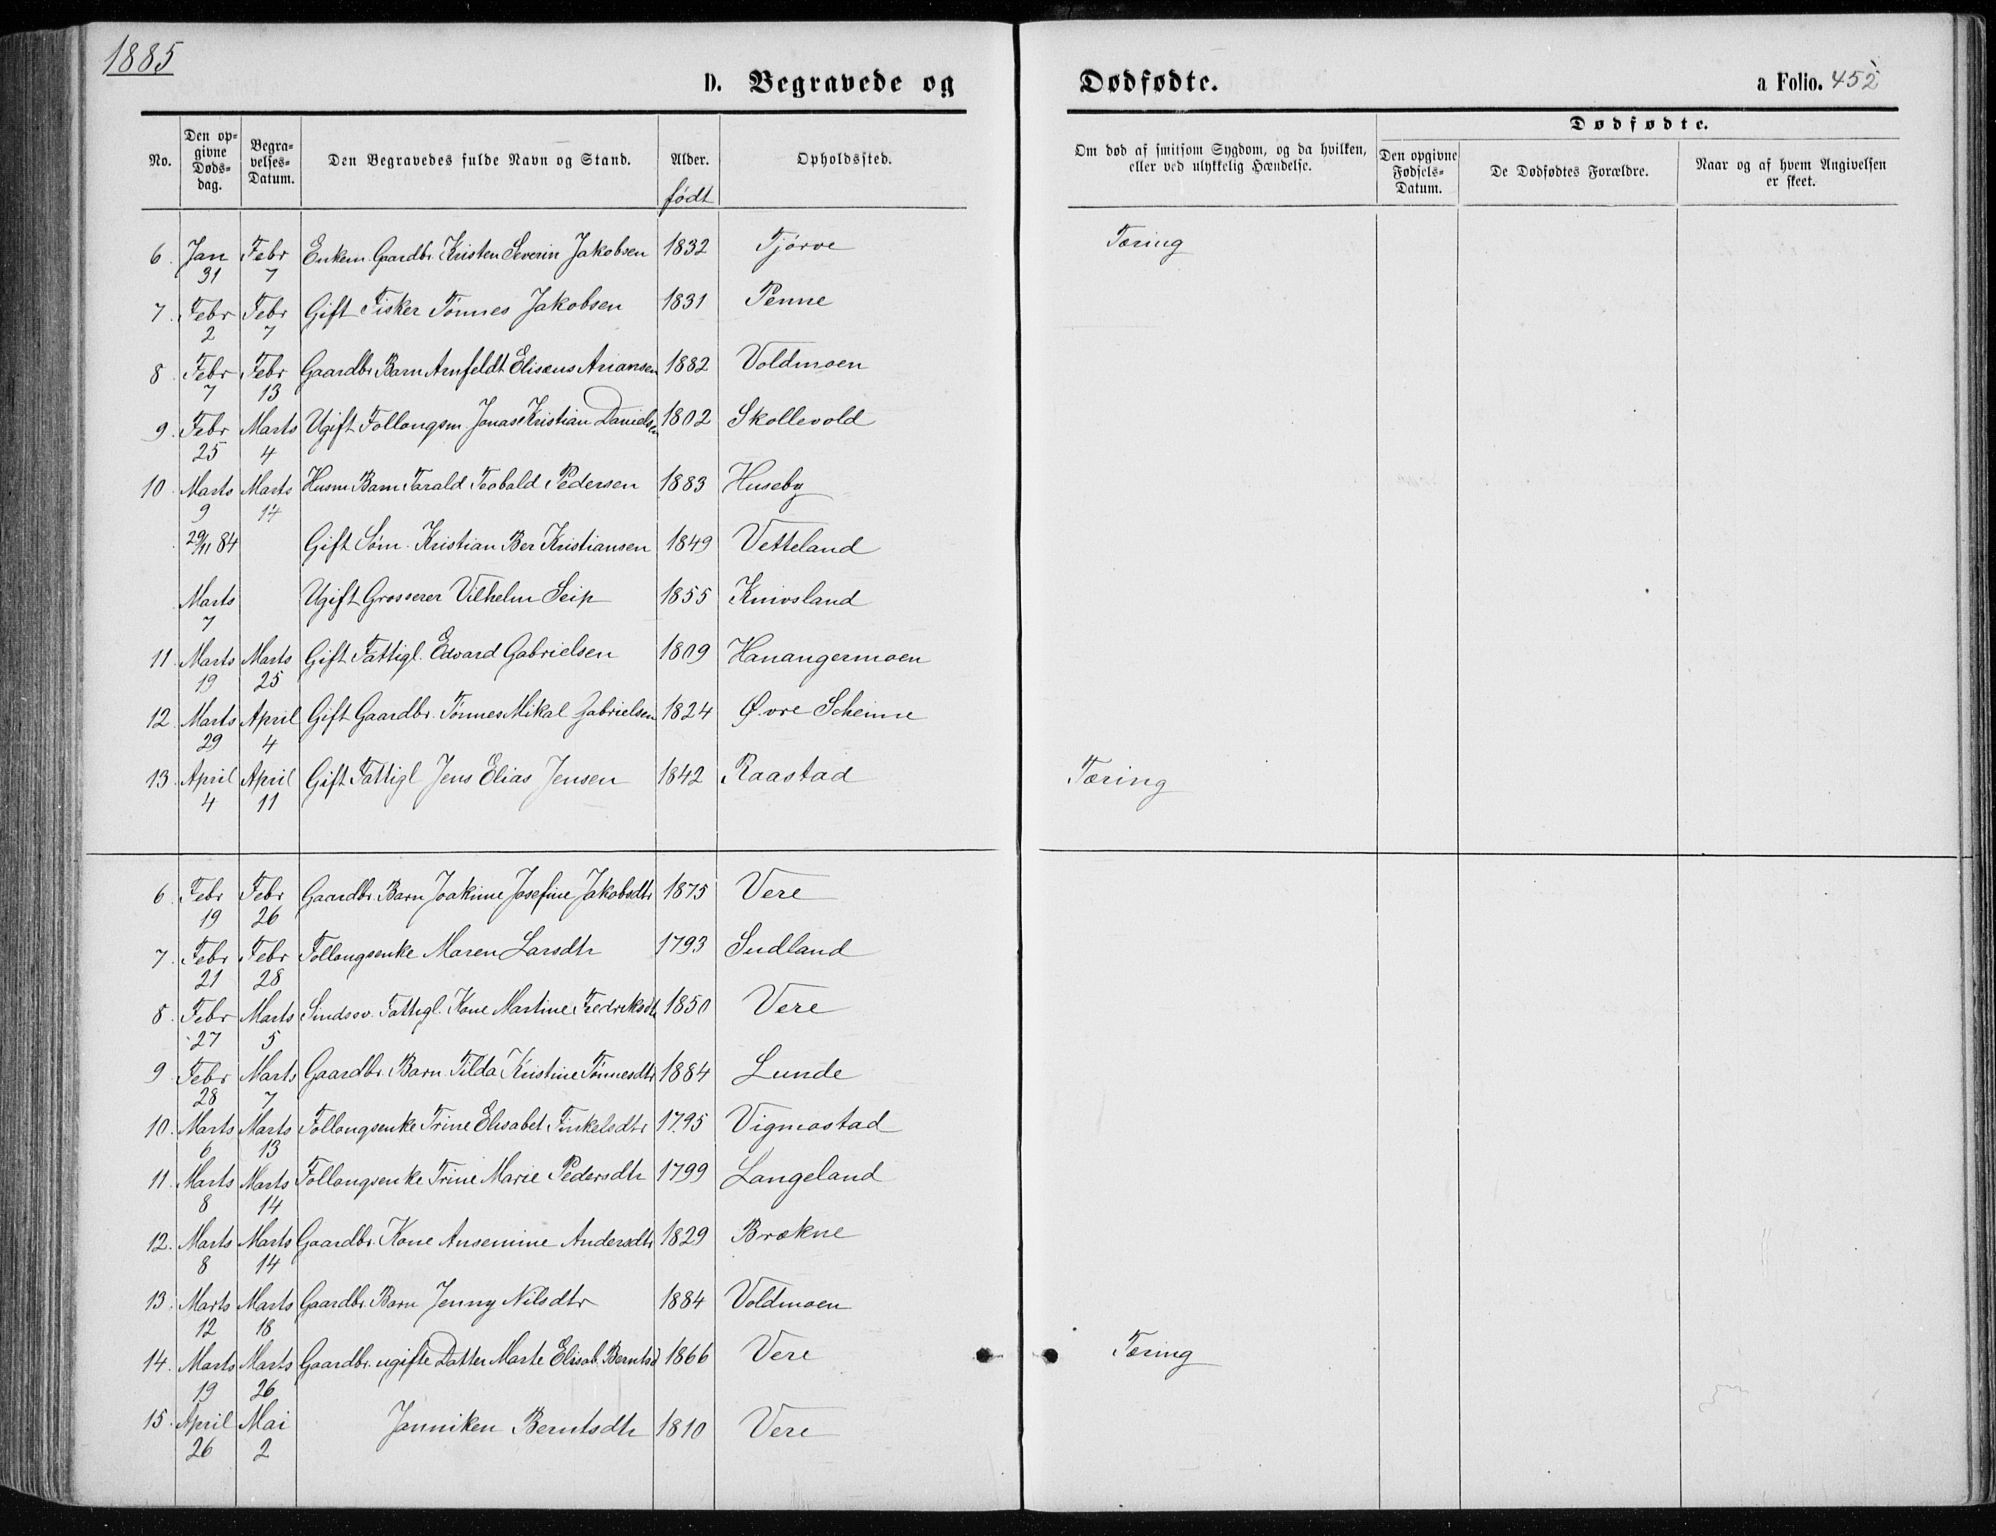 1885
D. Begravede og Dødfødte. a Folio. 452
No. Den opgivne Dødsdag. Begravelses-Datum. Den Begravedes fulde Navn og Stand. Alder. født Opholdssted. Om død af smitsom Sygdom, og da hvilken, eller ved ulykkelig Hændelse. Dødfødte. Den opgivne Fødsels-Datum. De Dødfødtes Forældre. Naar og af hvem Angivelsen er skeet.
6. Jan 31 Febr 7 Enkem. Gaardbr. Kristen Severin Jakobsen 1832 Tjørve Tæring
7. Febr 2 Febr 7 Gift Fisker Tønnes Jakobsen 1831 Penne
8. Febr 7 Febr 13 Gaardbr. Barn Arnfeldt Elisæus Ariansen 1882 Voldmoen
9. Febr 25 Marts 4 Ugift Follaugsm. Jonas Kristian Danielsen 1802 Skollevold
10. Marts 9 Marts 14 Husm Barn Tarald Teobald Pedersen 1883 Huseby
29/11 84 Gift Søm. Kristian Ber Kristiansen 1849 Vetteland
Marts 7 Ugift Grosserer Vilhelm Seip 1855 Knivsland
11. Marts 19 Marts 25 Gift Fattigl. Edvard Gabrielsen 1809 Hanangermoen
12. Marts 29 April 4 Gift Gaardbr. Tønnes Mikal Gabrielsen 1824 Øvre Scheime
13. April 4 April 11 Gift Fattigl Jens Elias Jensen 1842 Raastad Tæring
6. Febr 19 Febr 26 Gaardbr. Barn Joakime Josefine Jakobsdtr 1875 Vere
7. Febr 21 Febr 28 Follaugsenke Maren Larsdtr 1793 Sudland
8. Febr 27 Marts 5 Sindssv. Fattigl. Kone Martine Fredriksdt 1850 Vere
9. Febr 28 Marts 7 Gaardbr. Barn Tilda Kristine Tønnesdtr 1884 Lunde
10. Marts 6 Marts 13 Follaugsenke Trine Elisabet Tinkelsdtr 1795 Vigmostad
11. Marts 8 Marts 14 Follaugsenke Trine Marie Pedersdtr 1799 Langeland
12. Marts 8 Marts 14 Gaardbr. Kone Ansemine Andersdtr 1829 Brækne
13. Marts 12 Marts 18 Gaardbr. Barn Jenny Nilsdtr 1884 Voldmoen
14. Marts 19 Marts 26 Gaardbr. ugifte Datter Marte Elisab. Berntsd 1866 Vere Tæring
15. April 26 Mai 2 Janniken Berntsdtr 1810 Vere